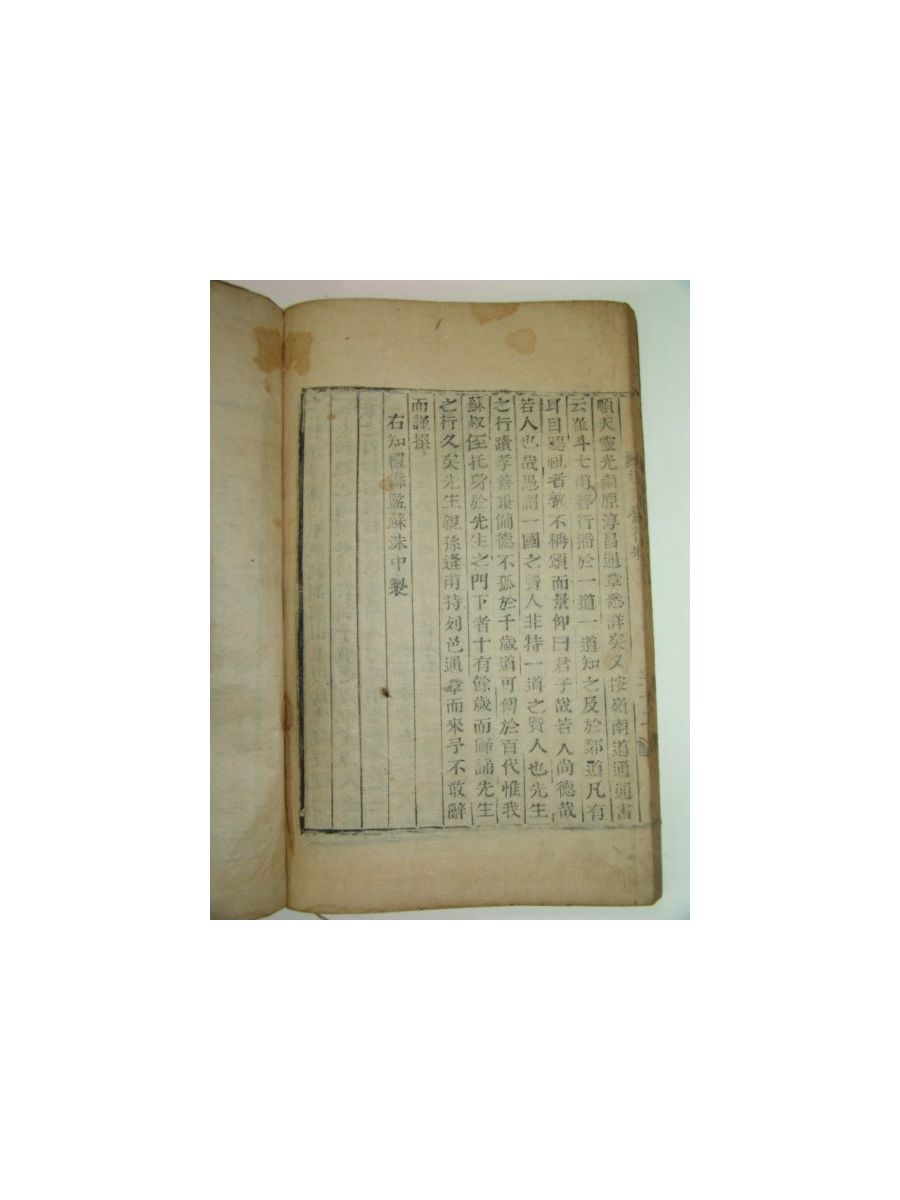 順天靈光南原淳昌通章悉詳矣又按嶺南道通通書
云崔斗七甫善行播於一道一道知之及於鄰道凡有
耳目聽視者孰不稱頌而景仰曰君子哉若人尚德哉
若人也哉愚謂一國之賢人非特一道之賢人也先生
之行蹟孝善兼備德不孤於千歲道可傳於百代惟我
蘇叔侄托身於先生之門下者十有餘歲而歸誦先生
之行久矣先生親孫逢甫持列邑通章而來予不敢辭
而謹撰
右知禮縣監蘇洙中製